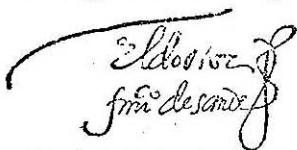 El doctor
fran^co de sande